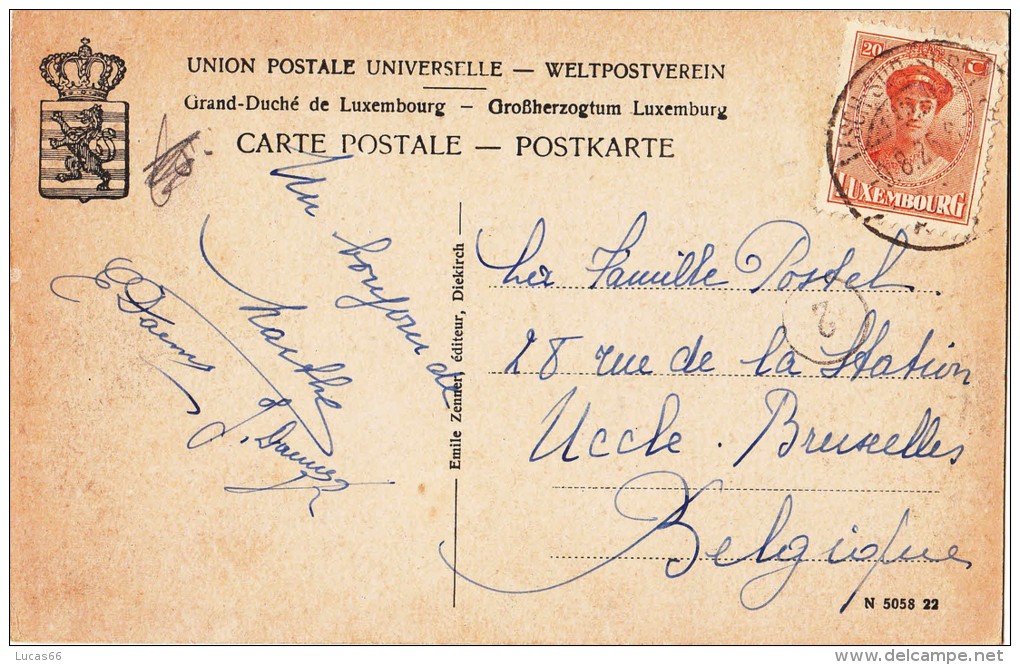 UNION POSTALE UNIVERSELLE — WELTPOSTVEREIN
Grand-Duché de Luxembourg — Großherzogtum Luxemburg
CARTE POSTALE — POSTKARTE
20 C
LUXEMBOURG
Un bonjour de
Marthe
E Daems
J. Daems
Emile Zenner, éditeur, Diekirch
La Famille Postel
28 rue de la Station
Uccle. Bruxelles
Belgique
2
N 5058 22
Lucas66
delcampe.net